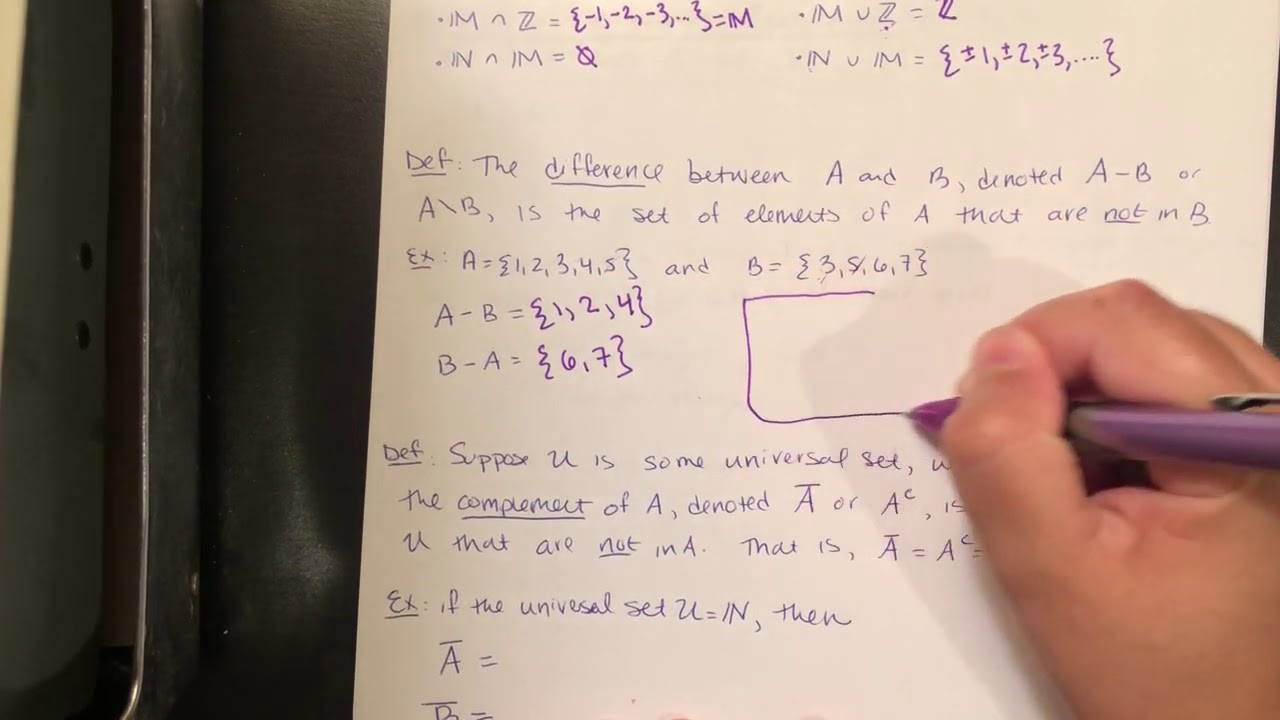 · ℕ ∩ ℤ = {-1,-2,-3,...} = 𝕄
· 𝕄 ∪ ℤ = ℤ
· ℕ ∩ 𝕄 = ∅
· ℕ ∪ 𝕄 = {±1,±2,±3,....}
Def: The difference between A and B, denoted A-B or
A\B, is the set of elements of A that are not in B
Ex: A={1,2,3,4,5} and B= {3,5,6,7}
A-B = {1,2,4}
B-A = {6,7}
Def: Suppose U is some universal set,
the complement of A, denoted A̅ or Aᶜ, is
U that are not in A. That is, A̅ = Aᶜ =
Ex: if the univesal set U=ℕ, then
A̅ =
B̅ =